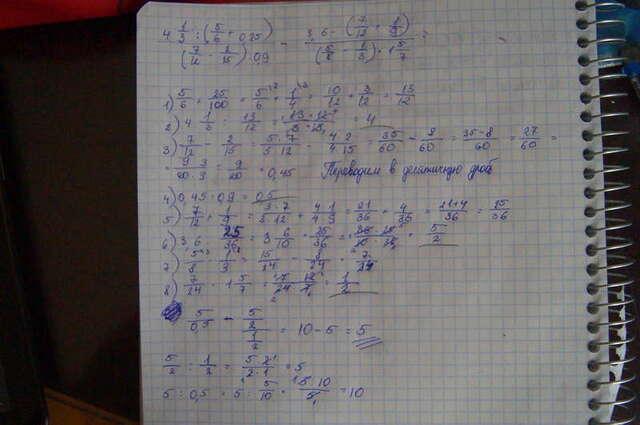 4 1/3 : (5/6 + 0,25) / (7/12 - 2/15) : 0,9 - 3,6 · (7/12 + 1/9) / (5/8 - 1/3) · 1 5/7 =
1) 5/6 + 25/100 = 5/6 + 1/4 = 10/12 + 3/12 = 13/12
2) 4 1/3 : 13/12 = 13·12/3·13 = 4
3) 7/12 - 2/15 = 5·7/5·12 - 4·2/4·15 = 35/60 - 8/60 = 35-8/60 = 27/60 =
= 9·3/20·3 = 9/20 = 0,45 Переводим в десятичную дробь
4) 0,45 : 0,9 = 0,5
5) 7/12 + 1/9 = 3·7/3·12 + 4·1/4·9 = 21/36 + 4/36 = 21+4/36 = 25/36
6) 3,6 · 25/36 = 3 6/10 · 25/36 = 36·25/10·36 = 5/2
7) 5/8 - 1/3 = 15/24 - 8/24 = 7/24
8) 7/24 · 1 5/7 = 7·12/24·7 = 1/2
5/0,5 - 5/2 / 1/2 = 10 - 5 = 5
5/2 : 1/2 = 5·2/2·1 = 5
5 : 0,5 = 5 : 5/10 = 5·10/5 = 10